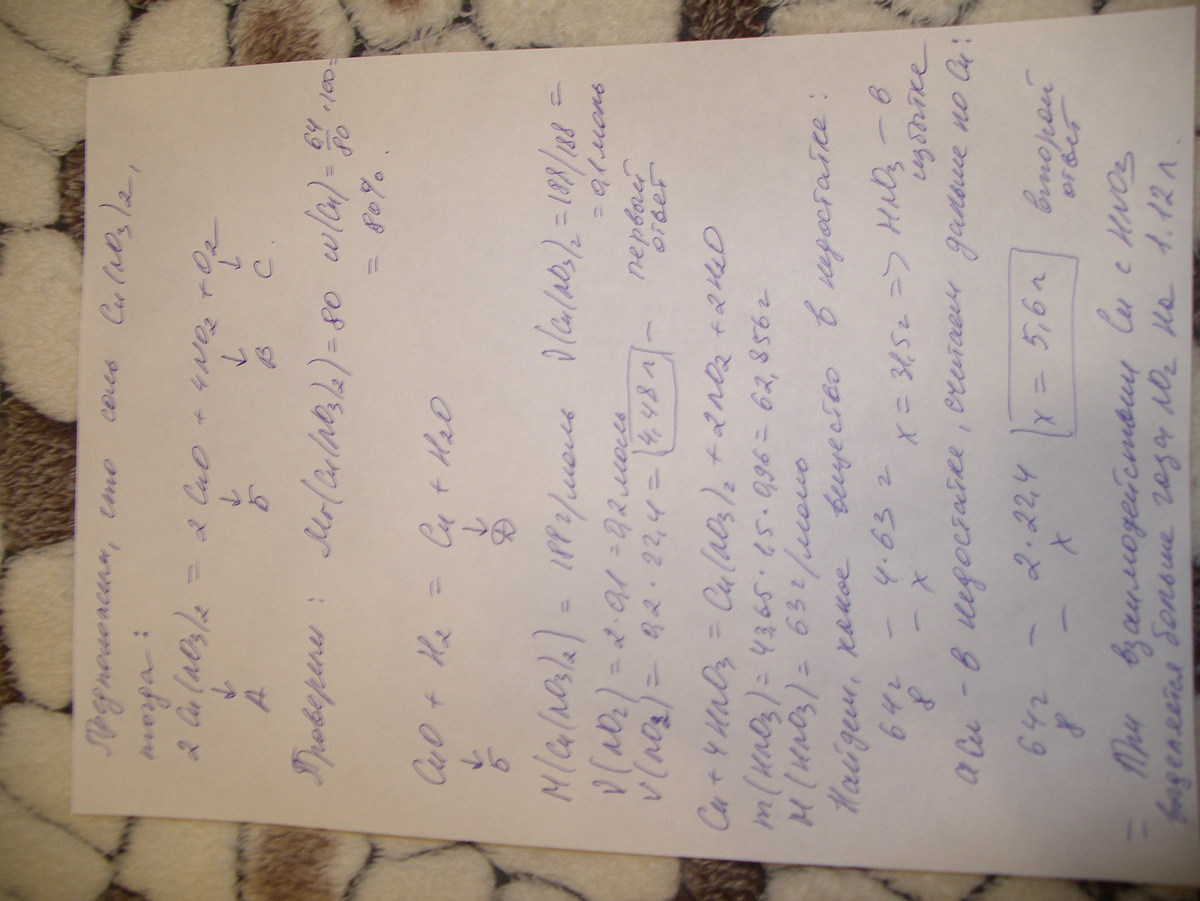 Предположим, что соль Cu(NO3)2,
тогда:
2Cu(NO3)2 = 2CuO + 4NO2 + O2
↓ ↓ ↓ ↓
А Б В С
Проверим: Mr(Cu(NO3)2) = 80 w(Cu) = 64/80 · 100 =
= 80%.
CuO + H2 = Cu + H2O
↓ ↓
Б Д
M(Cu(NO3)2) = 188 г/моль ν(Cu(NO3)2 = 18,8/188 =
= 0,1 моль
ν(NO2) = 2 · 0,1 = 0,2 моль
V(NO2) = 0,2 · 22,4 = 4,48 л — первый
ответ
Cu + 4HNO3 = Cu(NO3)2 + 2NO2 + 2H2O
m(HNO3) = 43,65 · 1,5 · 0,96 = 62,856 г
M(HNO3) = 63 г/моль
Найдем, какое вещество в недостатке:
64 г — 4·63 г
8 — x x = 31,5 г => HNO3 — в
избытке
а Cu — в недостатке, считаем дальше по Cu:
64 г — 2·22,4
8 — x x = 5,6 л второй
ответ
= При взаимодействии Cu с HNO3
выделяется больше газа NO2 на 1.12 л.